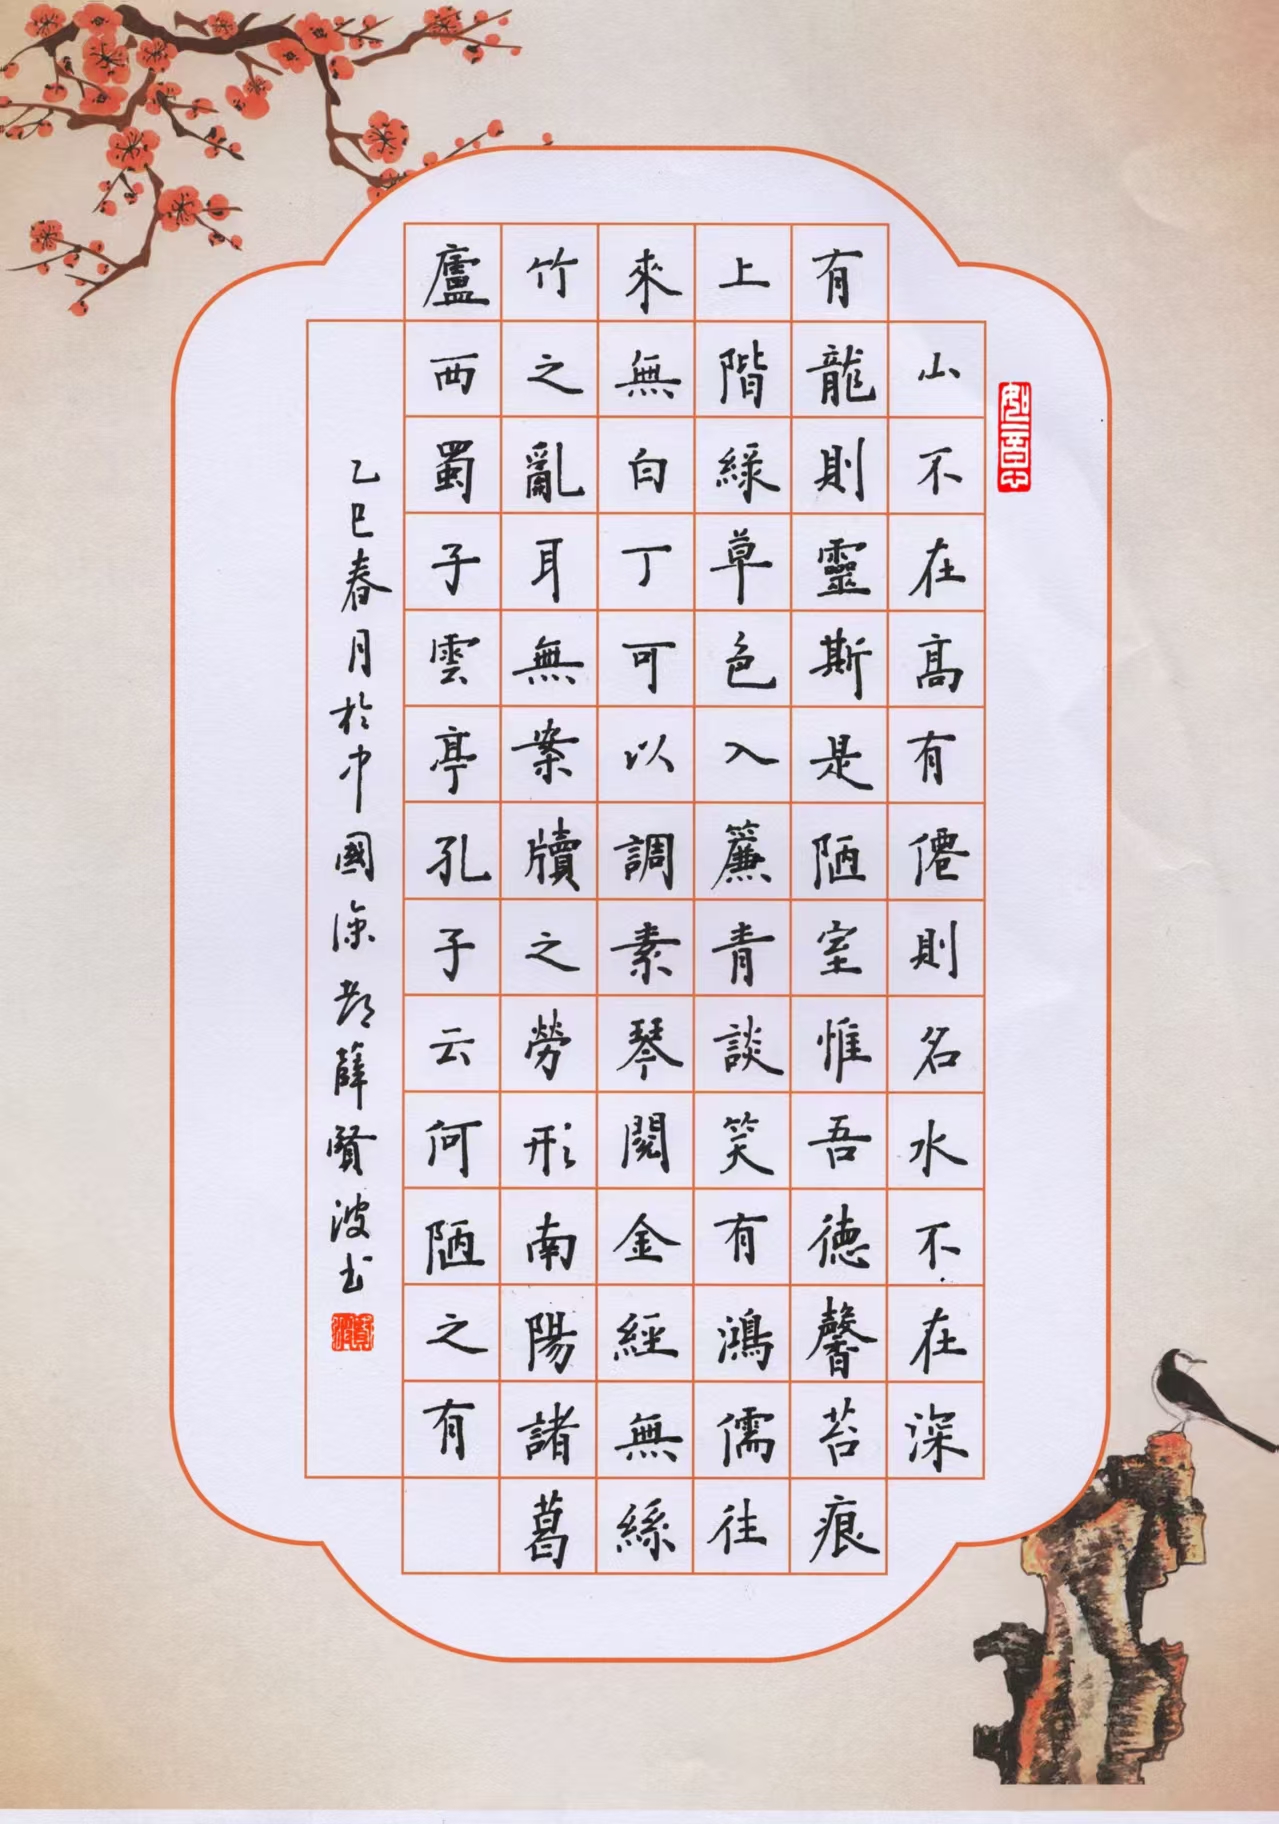 山不在高有僊則名水不在深
有龍則靈斯是陋室惟吾德馨苔痕
上階綠草色入簾青談笑有鴻儒往
來無白丁可以調素琴閱金經無絲
竹之亂耳無案牘之勞形南陽諸葛
廬西蜀子雲亭孔子云何陋之有
乙巳春月於中國涼都薛賢波书